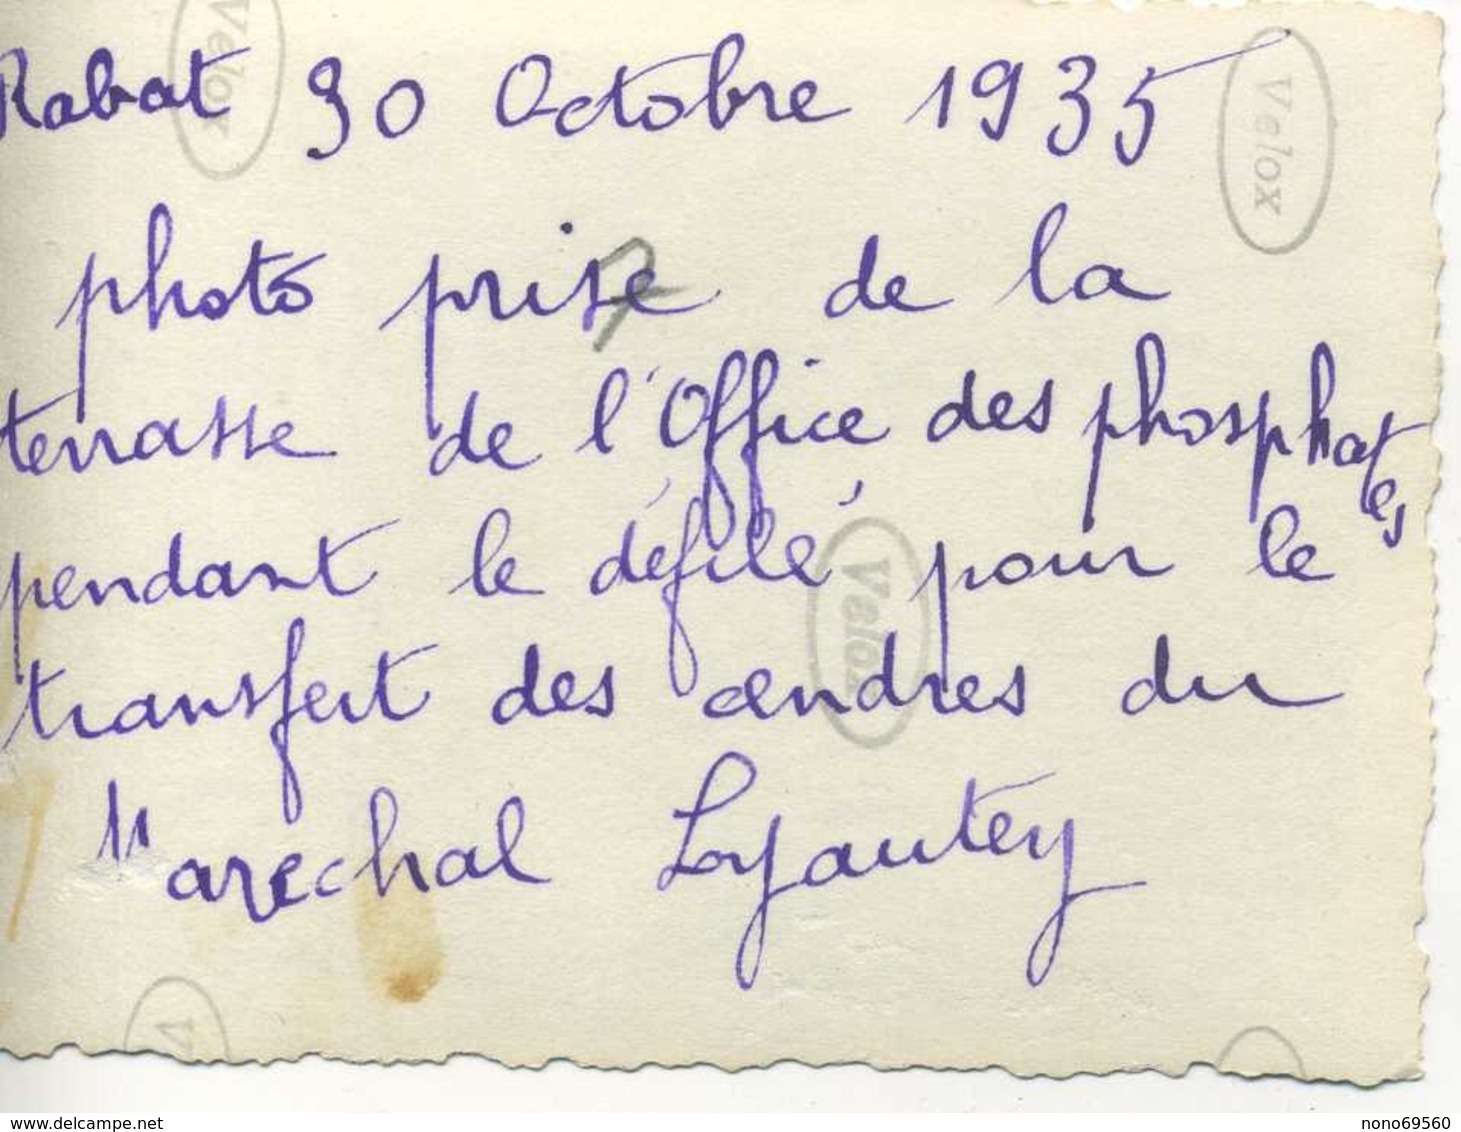 Rabat 30 Octobre 1935
photo prise de la
terrasse de l'Office des phosphates
pendant le défilé pour le
transfert des cendres du
Marechal Lyautey
Velox
Velox
Velox
V
7
www.delcampe.net
nono69560